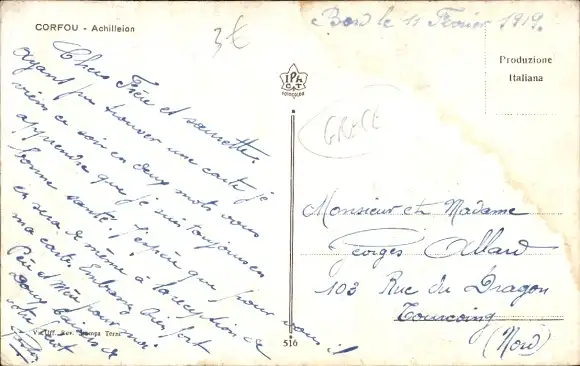 CORFOU - Achilleion
3€
Bord le 11 Février 1919.
Produzione
Italiana
GRECE
Chers Frère et sœurette.
ayant pu trouver une carte je
viens ce soir en deux mots vous
apprendre que je suis toujours en
bonne santé. J'espère que pour vous il
en sera de même à la réception de
ma carte. Embrassez bien fort
Père et Mère pour moi.
Doux baisers de
votre
Monsieur et Madame
Georges Allard
103 Rue du Dragon
Tourcoing
(Nord)
Rev. Stampa Terni
516